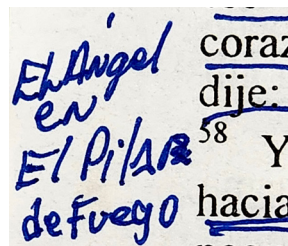 El Angel
en
El Pilar
de Fuego
coraz
dije:
58 Y
hacia